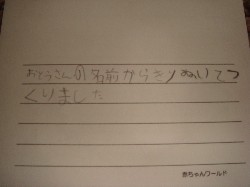 おとうさんの名前からきりぬいてつ
くりました
赤ちゃんワールド